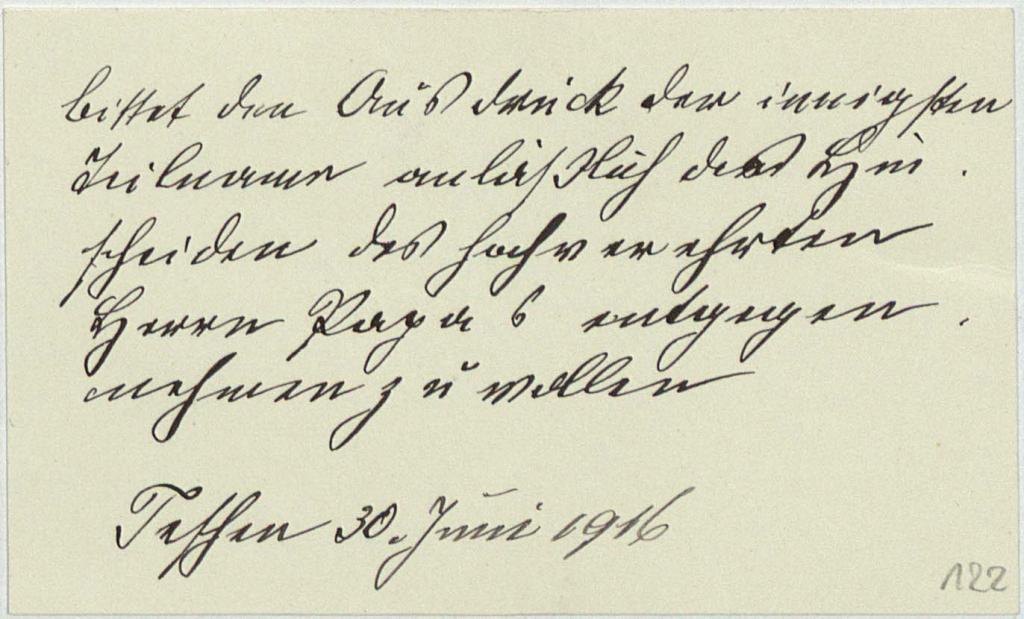 bittet den Ausdruck der innigsten
Teilname anläßlich des Hin-
scheiden des hochverehrten
Herrn Papa's entgegen-
nehmen zu wollen
Teschen 30. Juni 1916
122